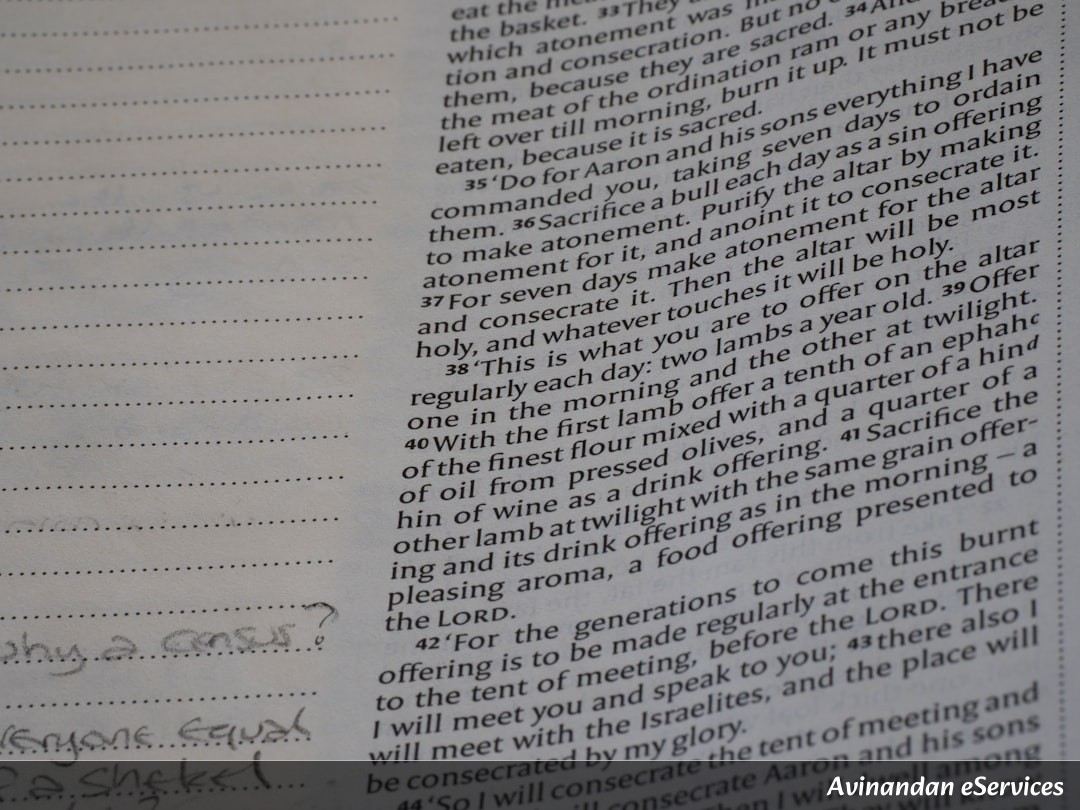 why a census?
everyone equal
a shekel
eat the
the basket. 33 They
which atonement was
tion and consecration. But no
them, because they are sacred. 34
the meat of the ordination ram or any
left over till morning, burn it up. It must not be
eaten, because it is sacred.
35 ‘Do for Aaron and his sons everything I have
commanded you, taking seven days to ordain
them. 36 Sacrifice a bull each day as a sin offering
to make atonement. Purify the altar by making
atonement for it, and anoint it to consecrate it.
37 For seven days make atonement for the altar
and consecrate it. Then the altar will be most
holy, and whatever touches it will be holy.
38 ‘This is what you are to offer on the altar
regularly each day: two lambs a year old. 39 Offer
one in the morning and the other at twilight.
40 With the first lamb offer a tenth of an ephah c
of the finest flour mixed with a quarter of a hin d
of oil from pressed olives, and a quarter of a
hin of wine as a drink offering. 41 Sacrifice the
other lamb at twilight with the same grain offer-
ing and its drink offering as in the morning – a
pleasing aroma, a food offering presented to
the LORD.
42 ‘For the generations to come this burnt
offering is to be made regularly at the entrance
to the tent of meeting, before the LORD. There
I will meet you and speak to you; 43 there also I
will meet with the Israelites, and the place will
be consecrated by my glory.
44 ‘So I will consecrate the tent of meeting and
consecrate Aaron and his sons
among
Avinandan eServices